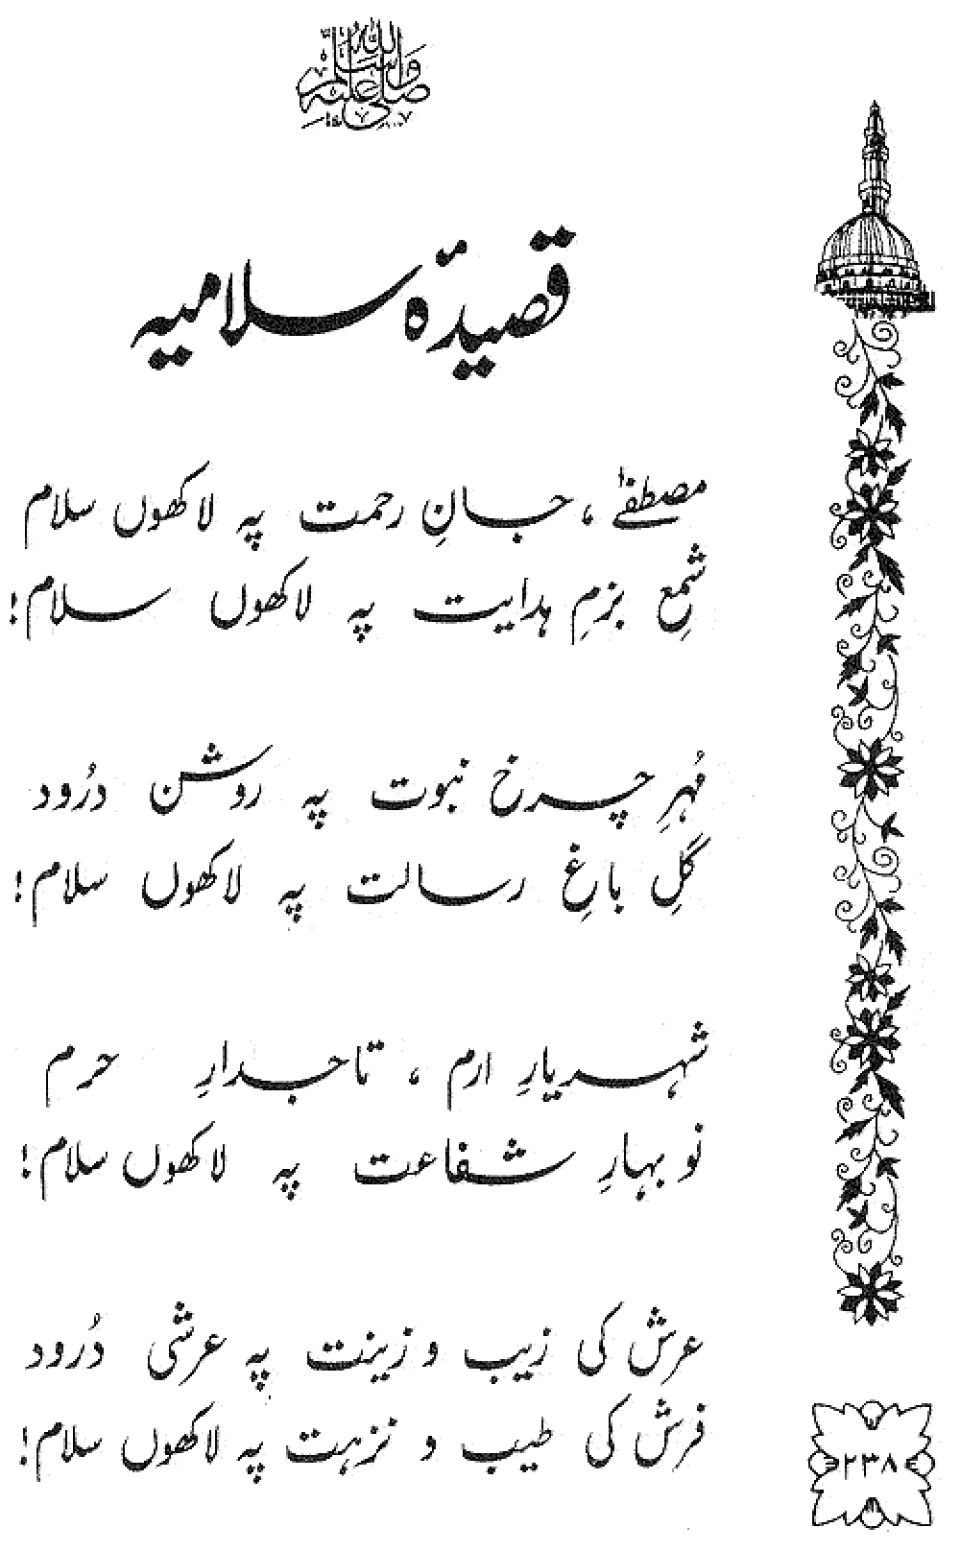 صلی اللہ علیہ وسلم
قصیدۂ سلامیہ
مصطفےٰ ، جانِ رحمت پہ لاکھوں سلام
شمعِ بزمِ ہدایت پہ لاکھوں سلام!
مُہرِ چرخِ نبوت پہ روشن دُرود
گلِ باغِ رسالت پہ لاکھوں سلام!
شہریارِ ارم ، تاجدارِ حرم
نو بہارِ شفاعت پہ لاکھوں سلام!
عرش کی زیب و زینت پہ عرشی دُرود
فرش کی طیب و نزہت پہ لاکھوں سلام!
۲۳۸